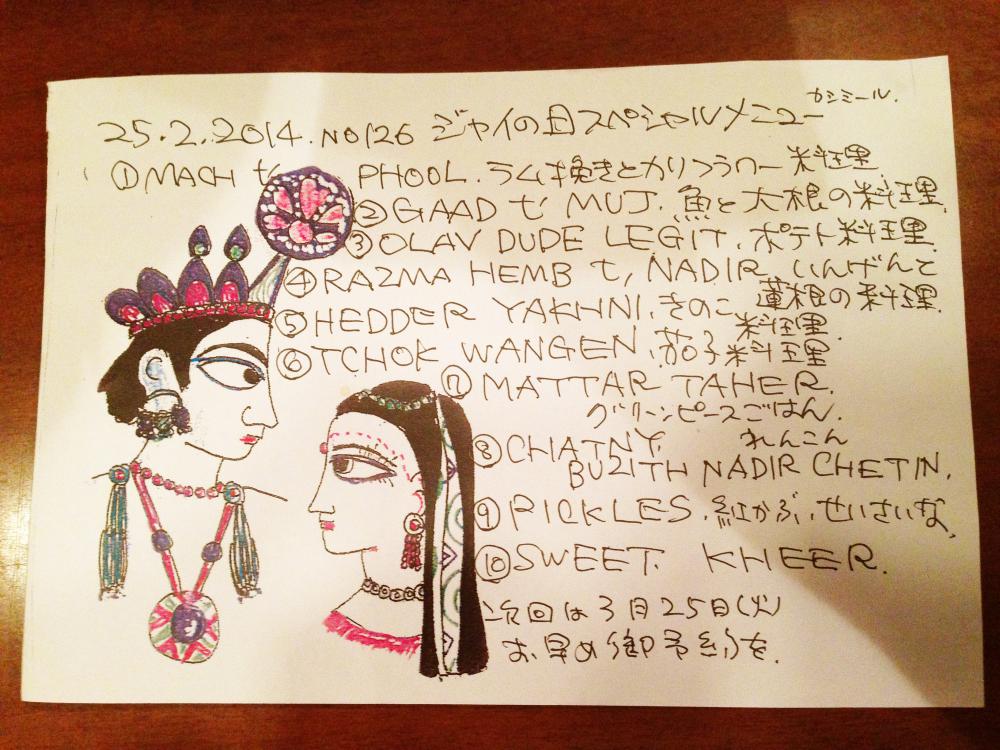 カシミール.
25.2.2014.NO126 ジャイの日スペシャルメニュー
①MACH t, PHOOL.ラム挽きとカリフラワー料理
②GAAD t' MUJ.魚と大根の料理.
③OLAV DUDE LEGIT.ポテト料理.
④RAZMA HEMB t, NADIR いんげんと
蓮根の料理.
⑤HEDDER YAKHNI.きのこ料理
⑥TCHOK WANGEN.茄子料理
⑦MATTAR TAHER.
グリーンピースごはん.
⑧CHATNY. れんこん
BUZITH NADIR CHETIN.
⑨PICKLES.紅かぶ.せいさいな.
⑩SWEET. KHEER.
次回は3月25日(火)
お早め御予約を.